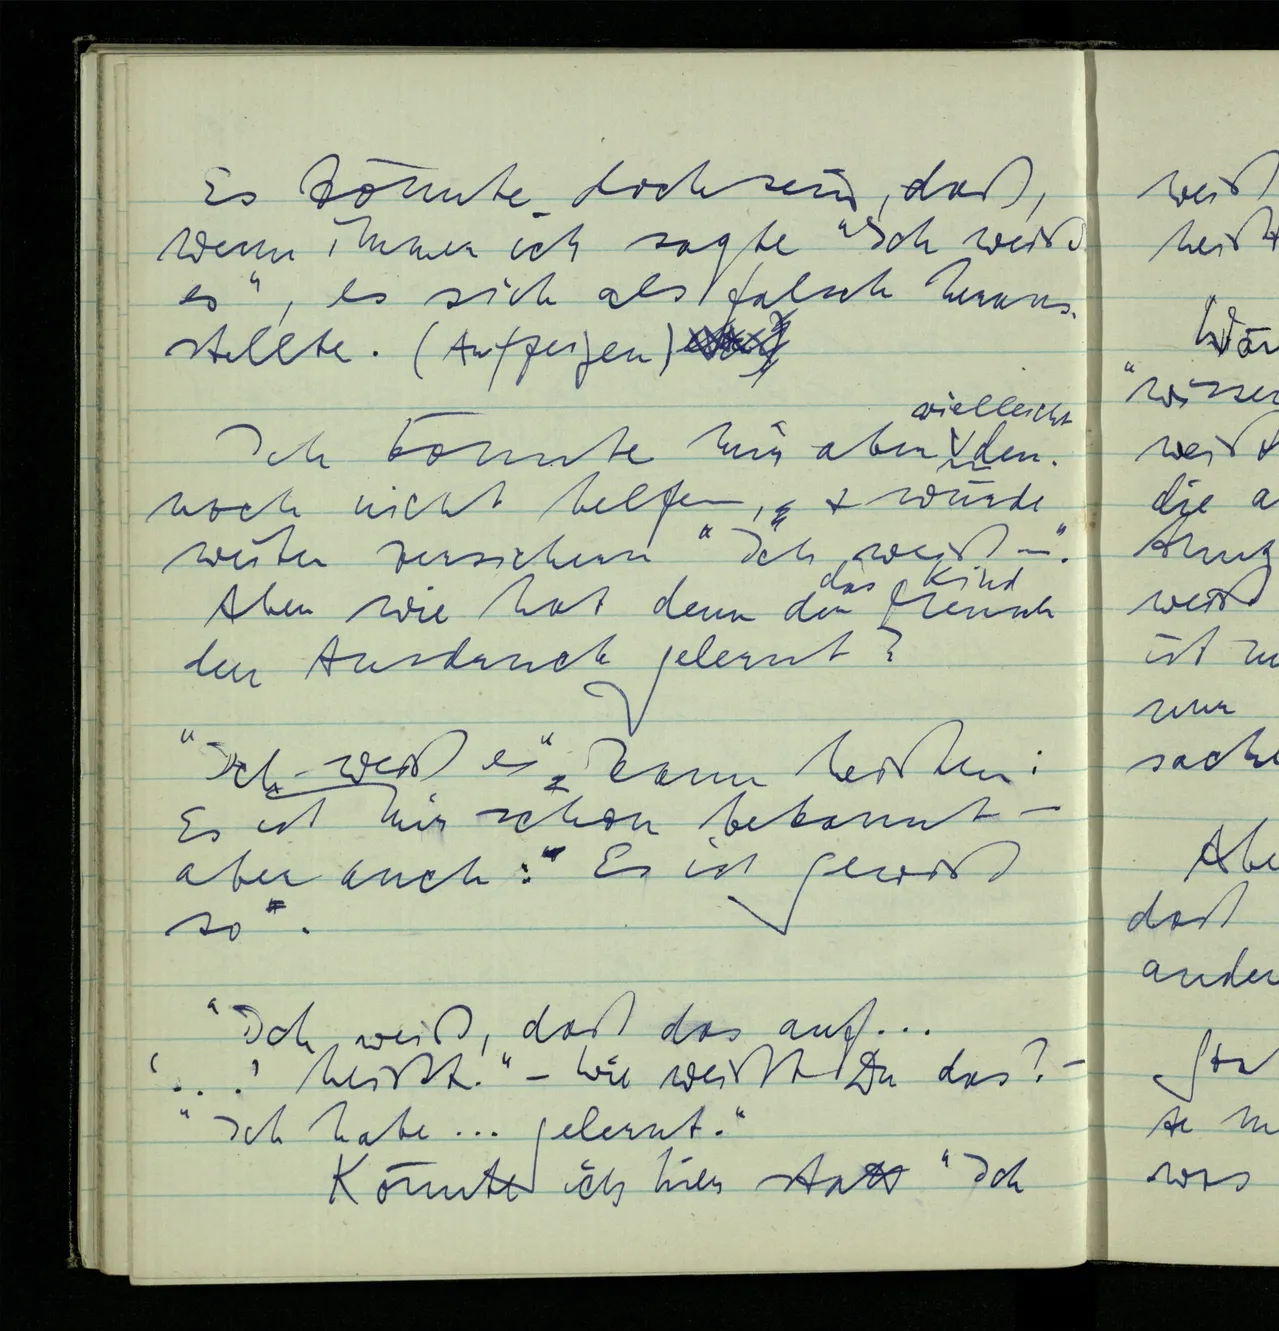 Es könnte doch sein, daß,
wenn immer ich sagte "Ich weiß
es", es sich als falsch heraus-
stellte. (Aufzeigen)
vielleicht
Ich könnte mir aber den-
noch nicht helfen, & würde
weiter versichern "Ich weiß –".
das Kind
Aber wie hat denn der Mensch
den Ausdruck gelernt?
"Ich weiß es" kann heißen:
Es ist mir schon bekannt –
aber auch: "Es ist gewiß
so".
"Ich weiß, daß das auf...
'...' heißt." – Wie weißt Du das? –
"Ich habe ... gelernt."
Könnte ich hier statt "Ich
weiß
heißt
die a
weiß
ist
nur
Abe
daß
ander
was